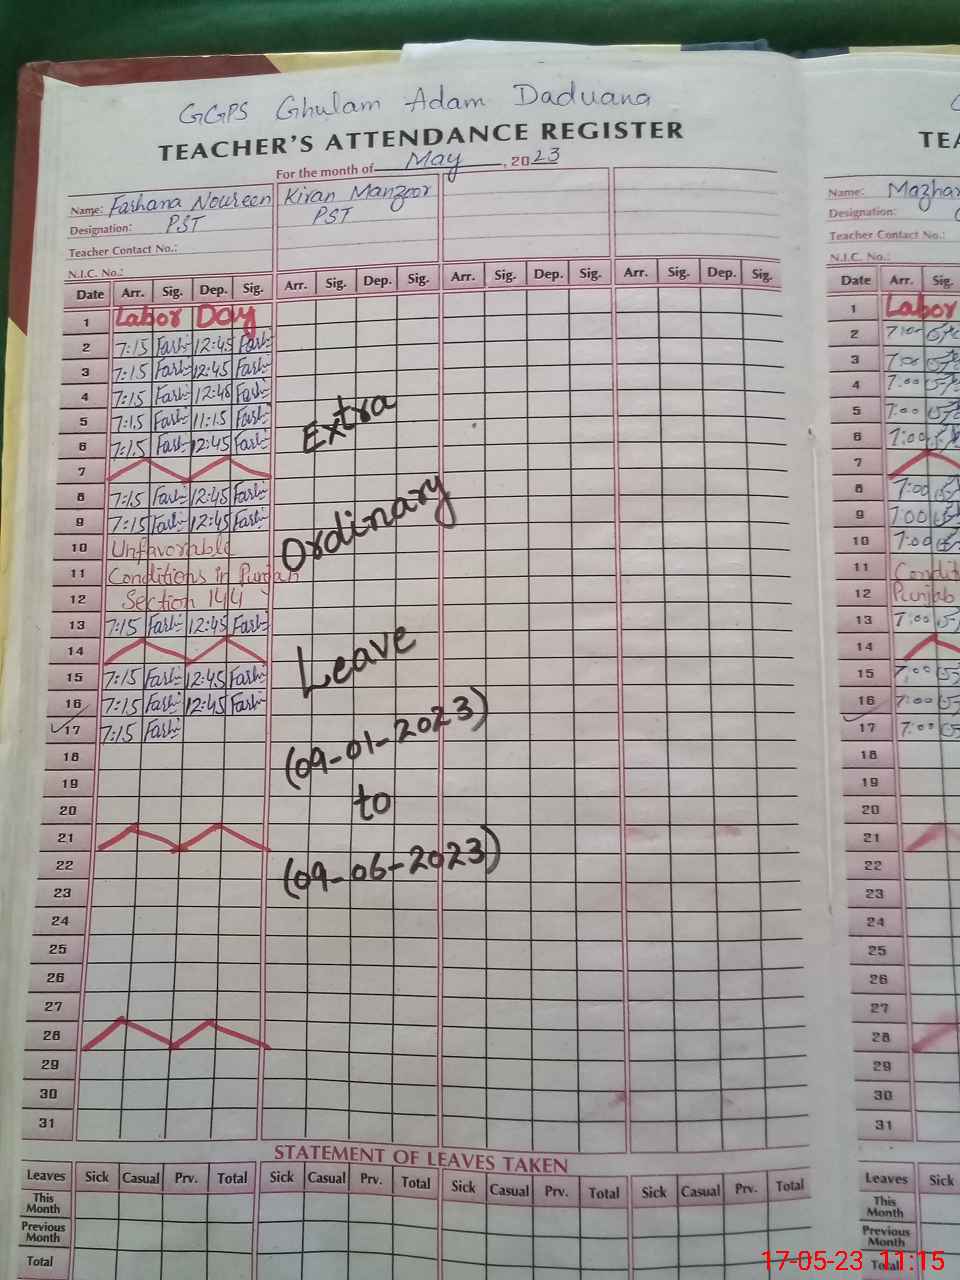 GGPS Ghulam Adam Daduana
TEACHER'S ATTENDANCE REGISTER
For the month of May, 2023
Name: Farhana Noureen Kiran Manzoor
Designation: PST PST
Teacher Contact No.:
N.I.C. No.:
Date Arr. Sig. Dep. Sig. Arr. Sig. Dep. Sig. Arr. Sig. Dep. Sig. Arr. Sig. Dep. Sig.
1 Labor Day
2 7:15 Farh 12:45 Farh
3 7:15 Farh 12:45 Farh
4 7:15 Farh 12:45 Farh
5 7:15 Farh 11:15 Farh
6 7:15 Farh 12:45 Farh
7
8 7:15 Farh 12:45 Farh
9 7:15 Farh 12:45 Farh
10 Unfavorable
11 Conditions in Punjab
12 Section 144
13 7:15 Farh 12:45 Farh
14
15 7:15 Farh 12:45 Farh
16 7:15 Farh 12:45 Farh
17 7:15 Farh
18
19
20
21
22
23
24
25
26
27
28
29
30
31
Extra
Ordinary
Leave
(09-01-2023)
to
(09-06-2023)
STATEMENT OF LEAVES TAKEN
Leaves Sick Casual Prv. Total Sick Casual Prv. Total Sick Casual Prv. Total Sick Casual Prv. Total
This Month
Previous Month
Total
Name: Mazhar
Designation:
Teacher Contact No.:
N.I.C. No.:
Date Arr. Sig.
1 Labor
2 7:00
3 7:00
4 7:00
5 7:00
6 7:00
7
8 7:00
9 7:00
10 7:00
11
12 Punjab
13 7:00
14
15 7:00
16 7:00
17 7:00
18
19
20
21
22
23
24
25
26
27
28
29
30
31
Leaves Sick
This Month
Previous Month
Total
17-05-23 11:15